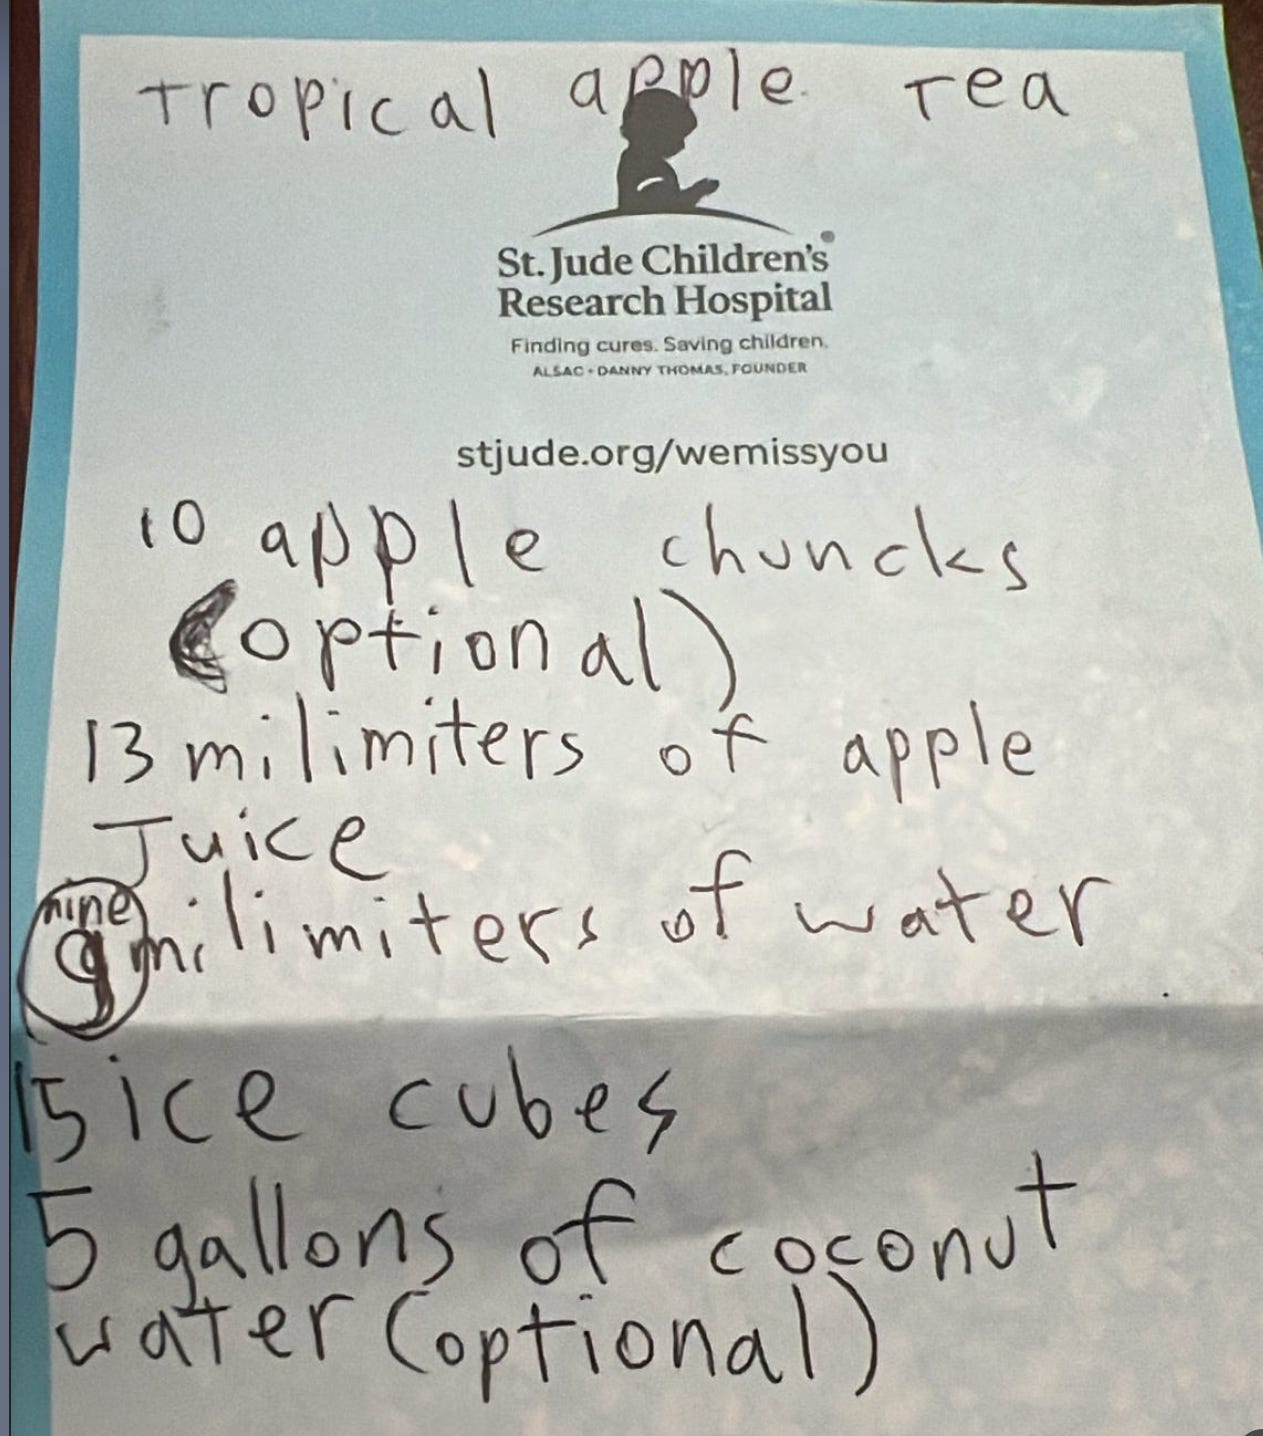 Tropical apple Tea
St. Jude Children's®
Research Hospital
Finding cures. Saving children.
ALSAC • DANNY THOMAS, FOUNDER
stjude.org/wemissyou
10 apple chuncks
(optional)
13 milimiters of apple
Juice
nine
9 milimiters of water
15 ice cubes
5 gallons of coconut
water (optional)